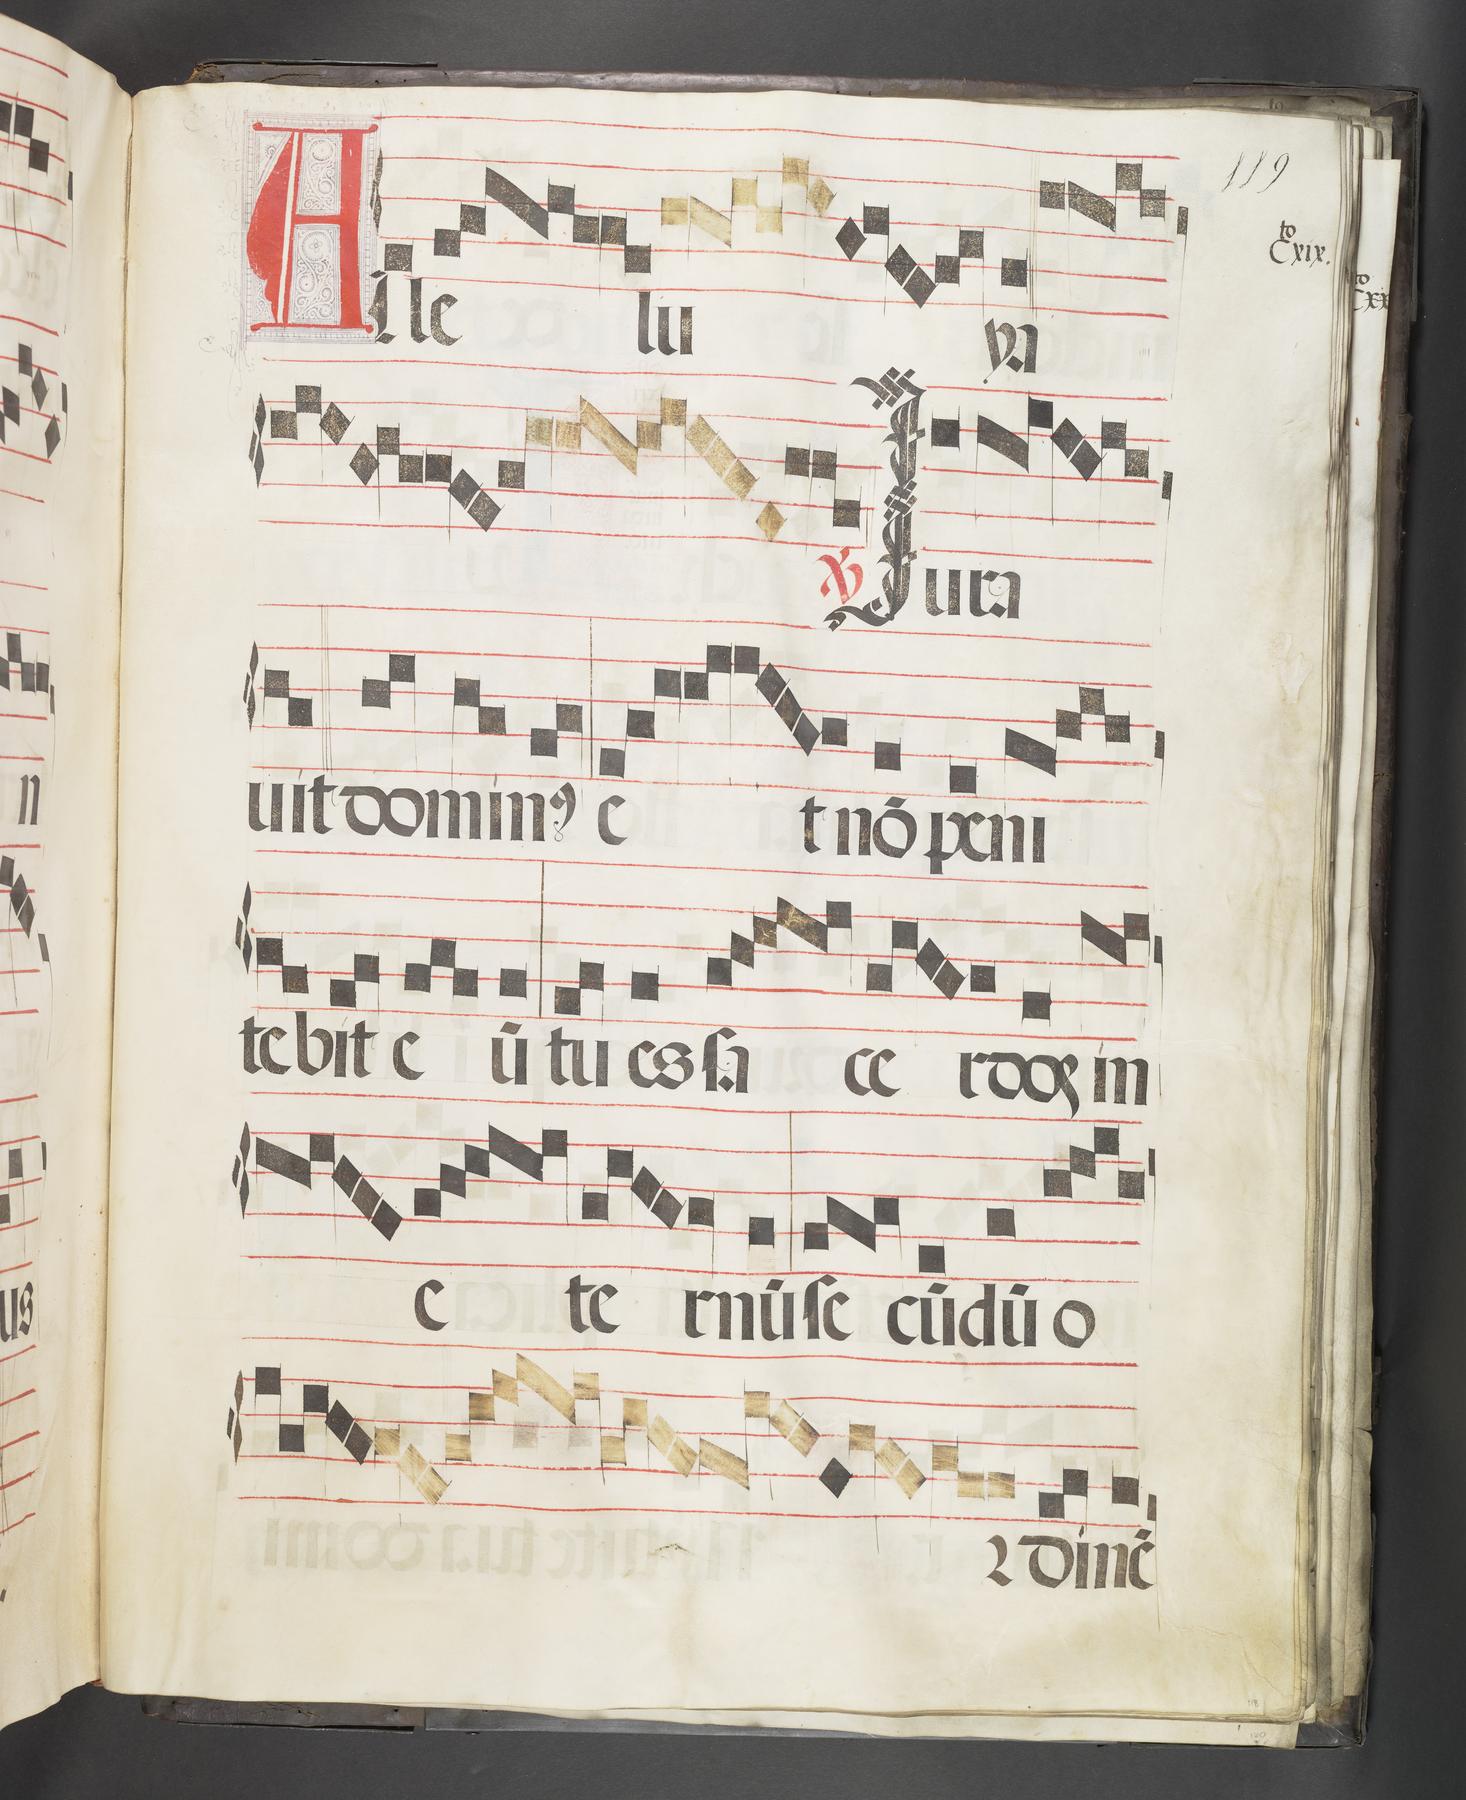 119
to
Cxix.
Alle lu ya
℣ Jura
uit dominꝰ e t nō peni
tebit e ū tu es sa ce rdos in
e te rnū se cūdū o
rdinē